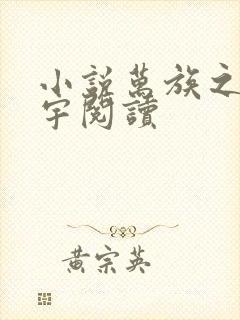 小說萬族之
宇閱讀
黃宗英